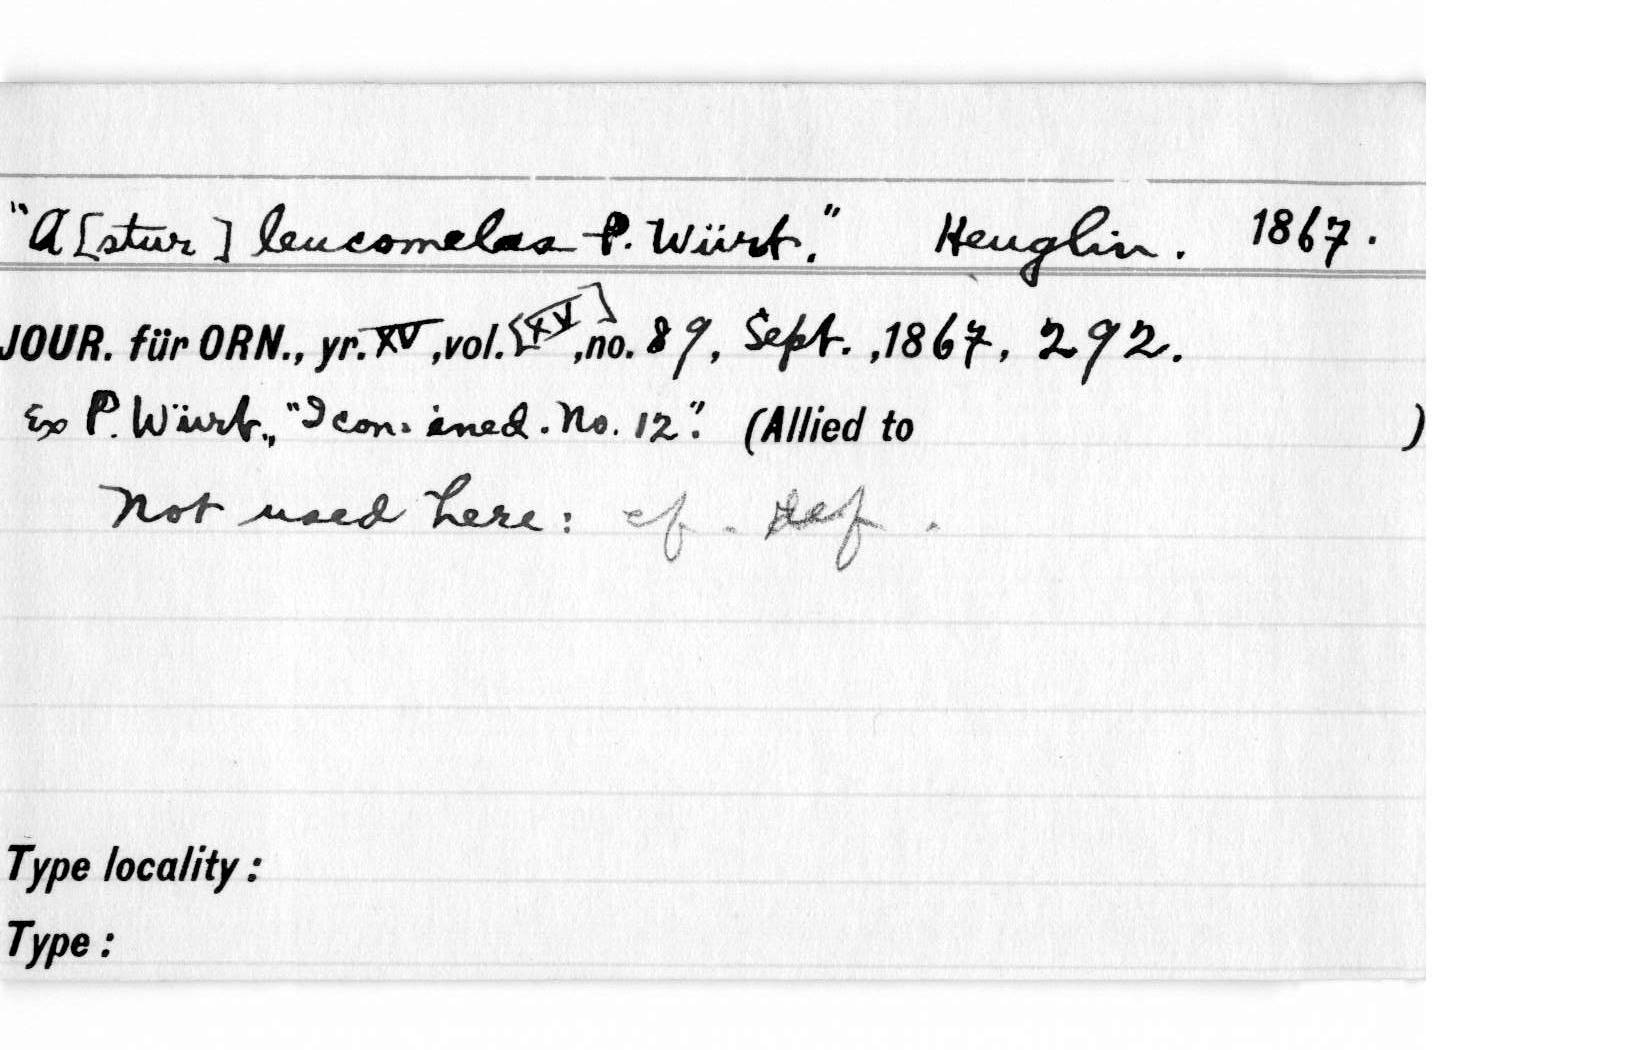 "A[stur] leucomelas P. Würt." Heuglin. 1867.
JOUR. für ORN., yr. XV, vol. [XV], no. 89, Sept., 1867, 292.
Ex P. Würt., "Icon. ined. No. 12". (Allied to )
Not used here: cf. def.
Type locality:
Type: